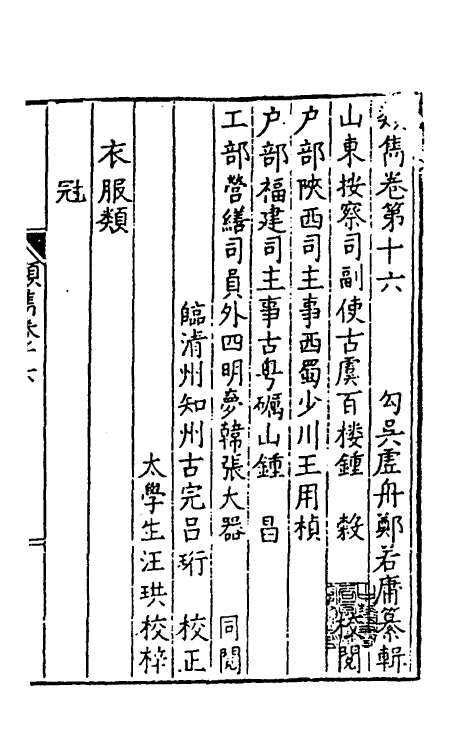 類雋卷第十六 勾吳虛舟鄭若庸纂輯
山東按察司副使古虞百樓鍾 穀 校閱
户部陝西司主事西蜀少川王用楨
户部福建司主事古粤礪山鍾 昌
工部營繕司員外四明夢韓張大器 同閱
臨清州知州古完呂珩 校正
太學生汪珙校梓
衣服類
冠
類雋卷十六